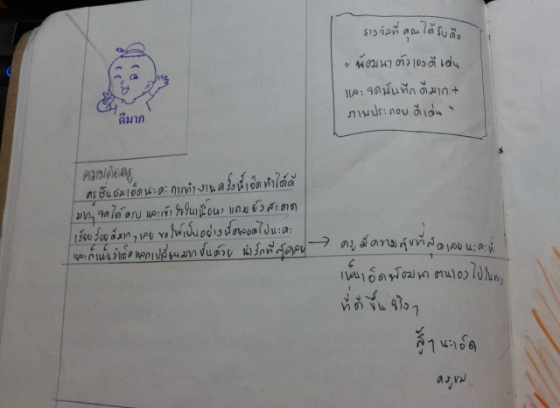 ดีมาก
รางวัลที่คุณได้รับคือ
" พัฒนาตัวเองดีเด่น
และจดบันทึกดีมาก +
ภาพประกอบดีเด่น "
ความคิดครู
ครูชื่นชมเอ็ดนะคะ การทำงานครั้งนี้เอ็ดทำได้ดี
มากๆ จดได้ครบ และเข้าใจในเนื้อหา แถมยังสะอาด
เรียบร้อยดีมากๆเลย ขอให้เป็นอย่างนี้ตลอดไปนะคะ
และก็เห็นว่าเอ็ดแลกเปลี่ยนมากขึ้นด้วย น่ารักที่สุดเลย
→ ครูมีความสุขที่สุดเลยนะคะที่
เห็นเอ็ดพัฒนาตนเองไปในทาง
ที่ดีขึ้นจริงๆ
สู้ๆ นะเอ็ด